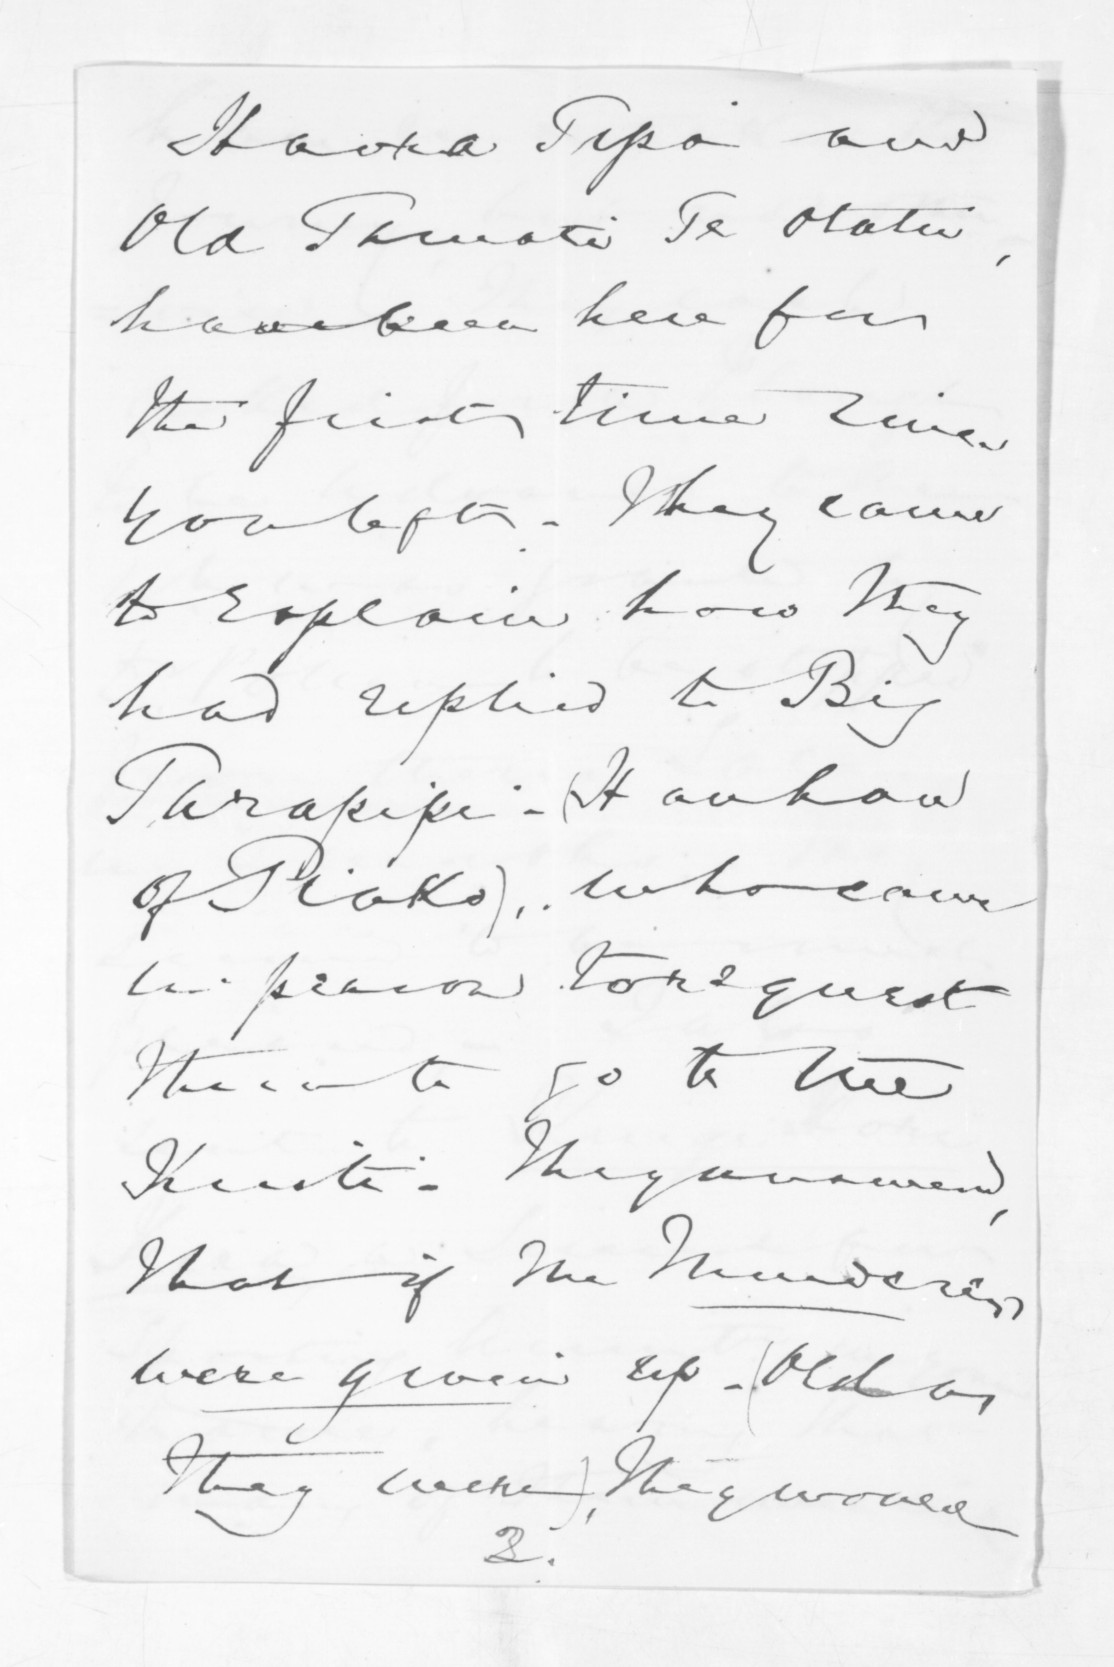 Haora Tipa and
Old Tamati Te Otatu,
have been here for
the first time since
you left - They came
to explain how they
had replied to Big
Tarapipi - (Hauhau
of Piako), who came
in person to request
them to go to the
Kuiti - They answered,
that if the Murderers
were given up - (Old as
they were), they would
3.